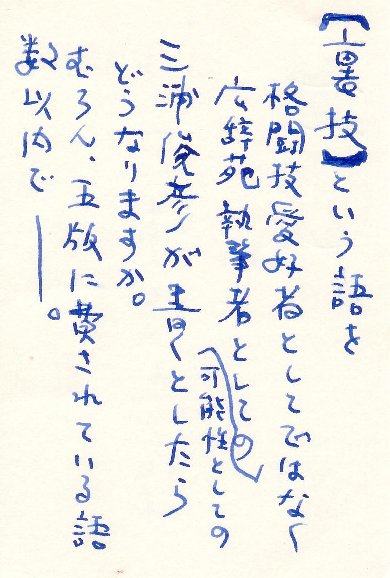 【裏技】という語を
格闘技愛好者としてではなく
広辞苑執筆者としての
(可能性としての)
三浦俊彦が書くとしたら
どうなりますか。
むろん、五版に費されている語
数以内で——。